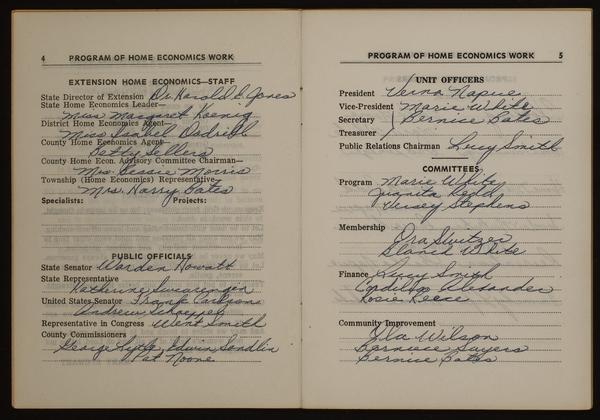 4 PROGRAM OF HOME ECONOMICS WORK
EXTENSION HOME ECONOMICS—STAFF
State Director of Extension Dr. Harold E. Jones
State Home Economics Leader—
Miss Margaret Koenig
District Home Economics Agent—
Miss Isabel
County Home Economics Agent
Betty Sellers
County Home Econ. Advisory Committee Chairman—
Mrs. Bessie Morris
Township (Home Economics) Representative
Mrs. Harry Bates
Specialists: Projects:
PUBLIC OFFICIALS
State Senator Howatt
State Representative
Katherine
United States Senator Frank Carlson
Andrew Schoeppel
Representative in Congress Wint Smith
County Commissioners
George Edwin Sandlin
Pat Noone
PROGRAM OF HOME ECONOMICS WORK 5
UNIT OFFICERS
President Verna Napue
Vice-President Marie White
Secretary Bernice Bates
Treasurer
Public Relations Chairman Lucy Smith
COMMITTEES
Program Marie White
Juanita Redd
Versey Stephens
Membership
Ora Switzer
White
Finance Lucy Smith
Alexander
Rosie Reece
Community Improvement
Ola Wilson
Sayers
Bernice Bates